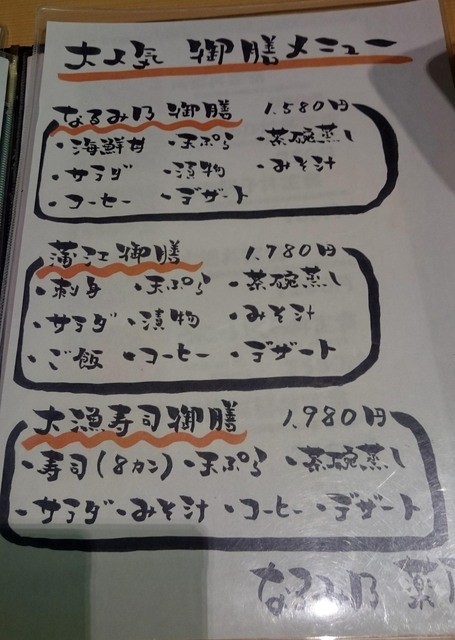 大人気 御膳メニュー
なるみ乃 御膳 1.580円
・海鮮丼 ・天ぷら ・茶碗蒸し
・サラダ ・漬物 ・みそ汁
・コーヒー ・デザート
蒲江御膳 1.780円
・刺身 ・天ぷら ・茶碗蒸し
・サラダ ・漬物 ・みそ汁
・ご飯 ・コーヒー ・デザート
大漁寿司御膳 1.980円
・寿司(8カン) ・天ぷら ・茶碗蒸し
・サラダ ・みそ汁 ・コーヒー ・デザート
なるみ乃